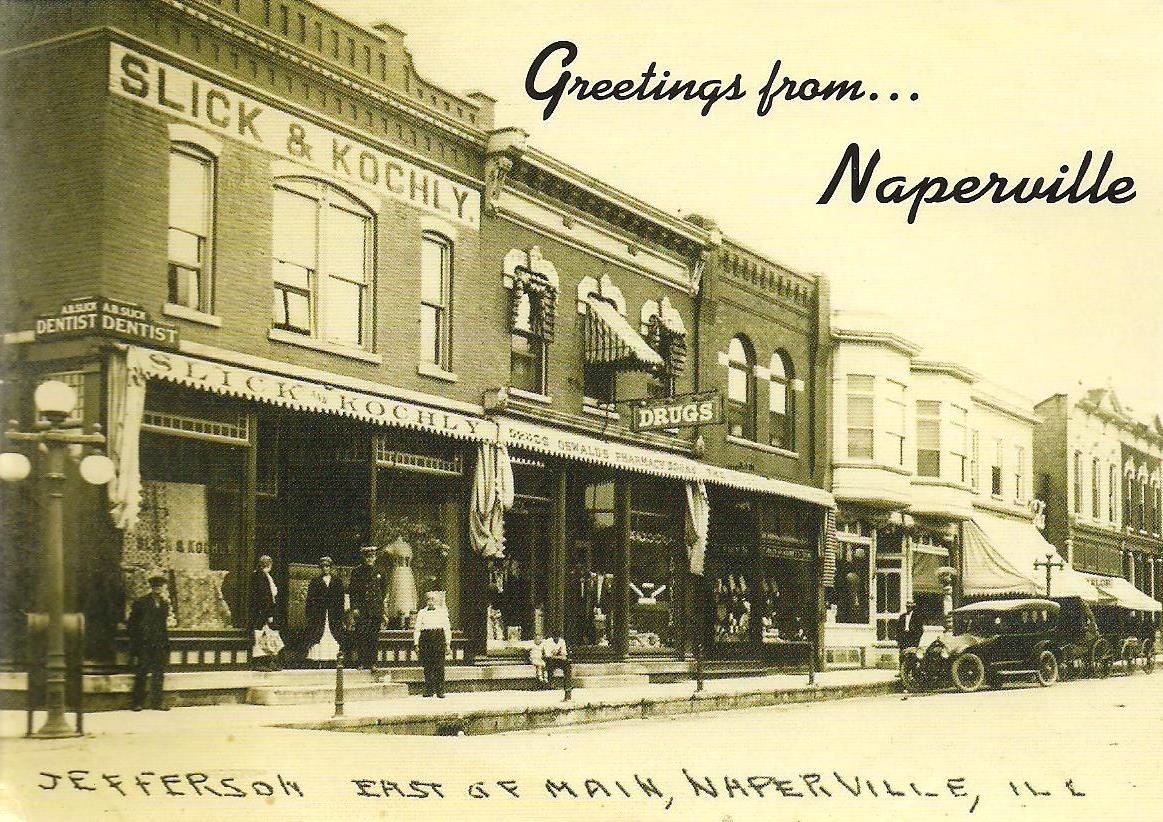 Greetings from...
Naperville
SLICK & KOCHLY.
A.B. SLICK
DENTIST
A.B. SLICK
DENTIST
SLICK AND KOCHLY
DRUGS
DRUGS OSWALDS PHARMACY
SLICK & KOCHLY
JEFFERSON EAST OF MAIN, NAPERVILLE, ILL